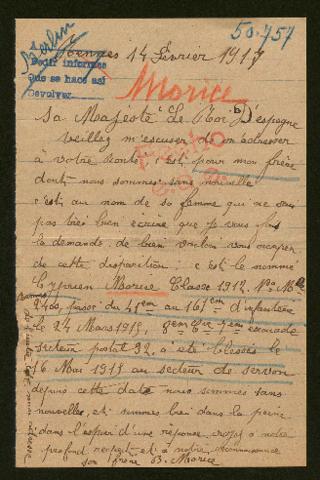 Berlin
50.757
A
Pedir informes
Que se hace así
Devolver
Rennes 14 Février 1917
Morice
Sa Majesté Le Roi D'espagne
Veillez m'escuser de m'adresser
à votre bonté c'est pour mon frère
dont nous sommes sans nouvelle
c'est au nom de sa femme qui ne sais
pas très bien écrire que je vous fais
la demande de bien vouloir vous occuper
de cette disparition : c'est le nommé
Cyprien Morice Classe 1912 No Mle
2400, passé du 41em au 161em d'infanterie
le 24 Mars 1915, 8em Cie 7em escouade
secteur postal 92, a été blessés le
16 Mai 1915 au secteur de servon
depuis cette date nous sommes sans
nouvelles, et sommes bien dans la peine
dans l'espoir d'une réponse croyez à notre
profond respect et à notre reconnaissance
son frère B. Morice